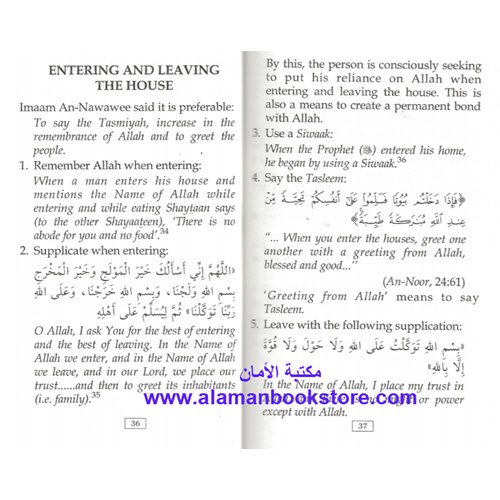 ENTERING AND LEAVING
THE HOUSE
Imaam An-Nawawee said it is preferable:
To say the Tasmiyah, increase in the
remembrance of Allah and to greet the
people.
1. Remember Allah when entering:
When a man enters his house and
mentions the Name of Allah while
entering and while eating Shaytaan says
(to the other Shayaateen), 'There is no
abode for you and no food'.34
2. Supplicate when entering:
«اللَّهُمَّ إِنِّي أَسْأَلُكَ خَيْرَ الْمَوْلَجِ وَخَيْرَ الْمَخْرَجِ
بِسْمِ اللَّهِ وَلَجْنَا، وَبِسْمِ اللَّهِ خَرَجْنَا، وَعَلَى اللَّهِ
رَبِّنَا تَوَكَّلْنَا» ثُمَّ لِيُسَلِّمْ عَلَى أَهْلِهِ
O Allah, I ask You for the best of entering
and the best of leaving. In the Name of
Allah we enter, and in the Name of Allah
we leave, and in our Lord, we place our
trust......and then to greet its inhabitants
(i.e. family).35
36
By this, the person is consciously seeking
to put his reliance on Allah when
entering and leaving the house. This is
also a means to create a permanent bond
with Allah.
3. Use a Siwaak:
When the Prophet (ﷺ) entered his home,
he began by using a Siwaak.36
4. Say the Tasleem:
﴿فَإِذَا دَخَلْتُم بُيُوتًا فَسَلِّمُوا عَلَىٰ أَنفُسِكُمْ تَحِيَّةً مِّنْ
عِندِ اللَّهِ مُبَارَكَةً طَيِّبَةً﴾
"... When you enter the houses, greet one
another with a greeting from Allah,
blessed and good..."
(An-Noor, 24:61)
'Greeting from Allah' means to say
Tasleem.
5. Leave with the following supplication:
«بِسْمِ اللَّهِ تَوَكَّلْتُ عَلَى اللَّهِ وَلَا حَوْلَ وَلَا قُوَّةَ
إِلَّا بِاللَّهِ»
In the Name of Allah, I place my trust in
or power
except with Allah.
37
مكتبة الأمان
www.alamanbookstore.com